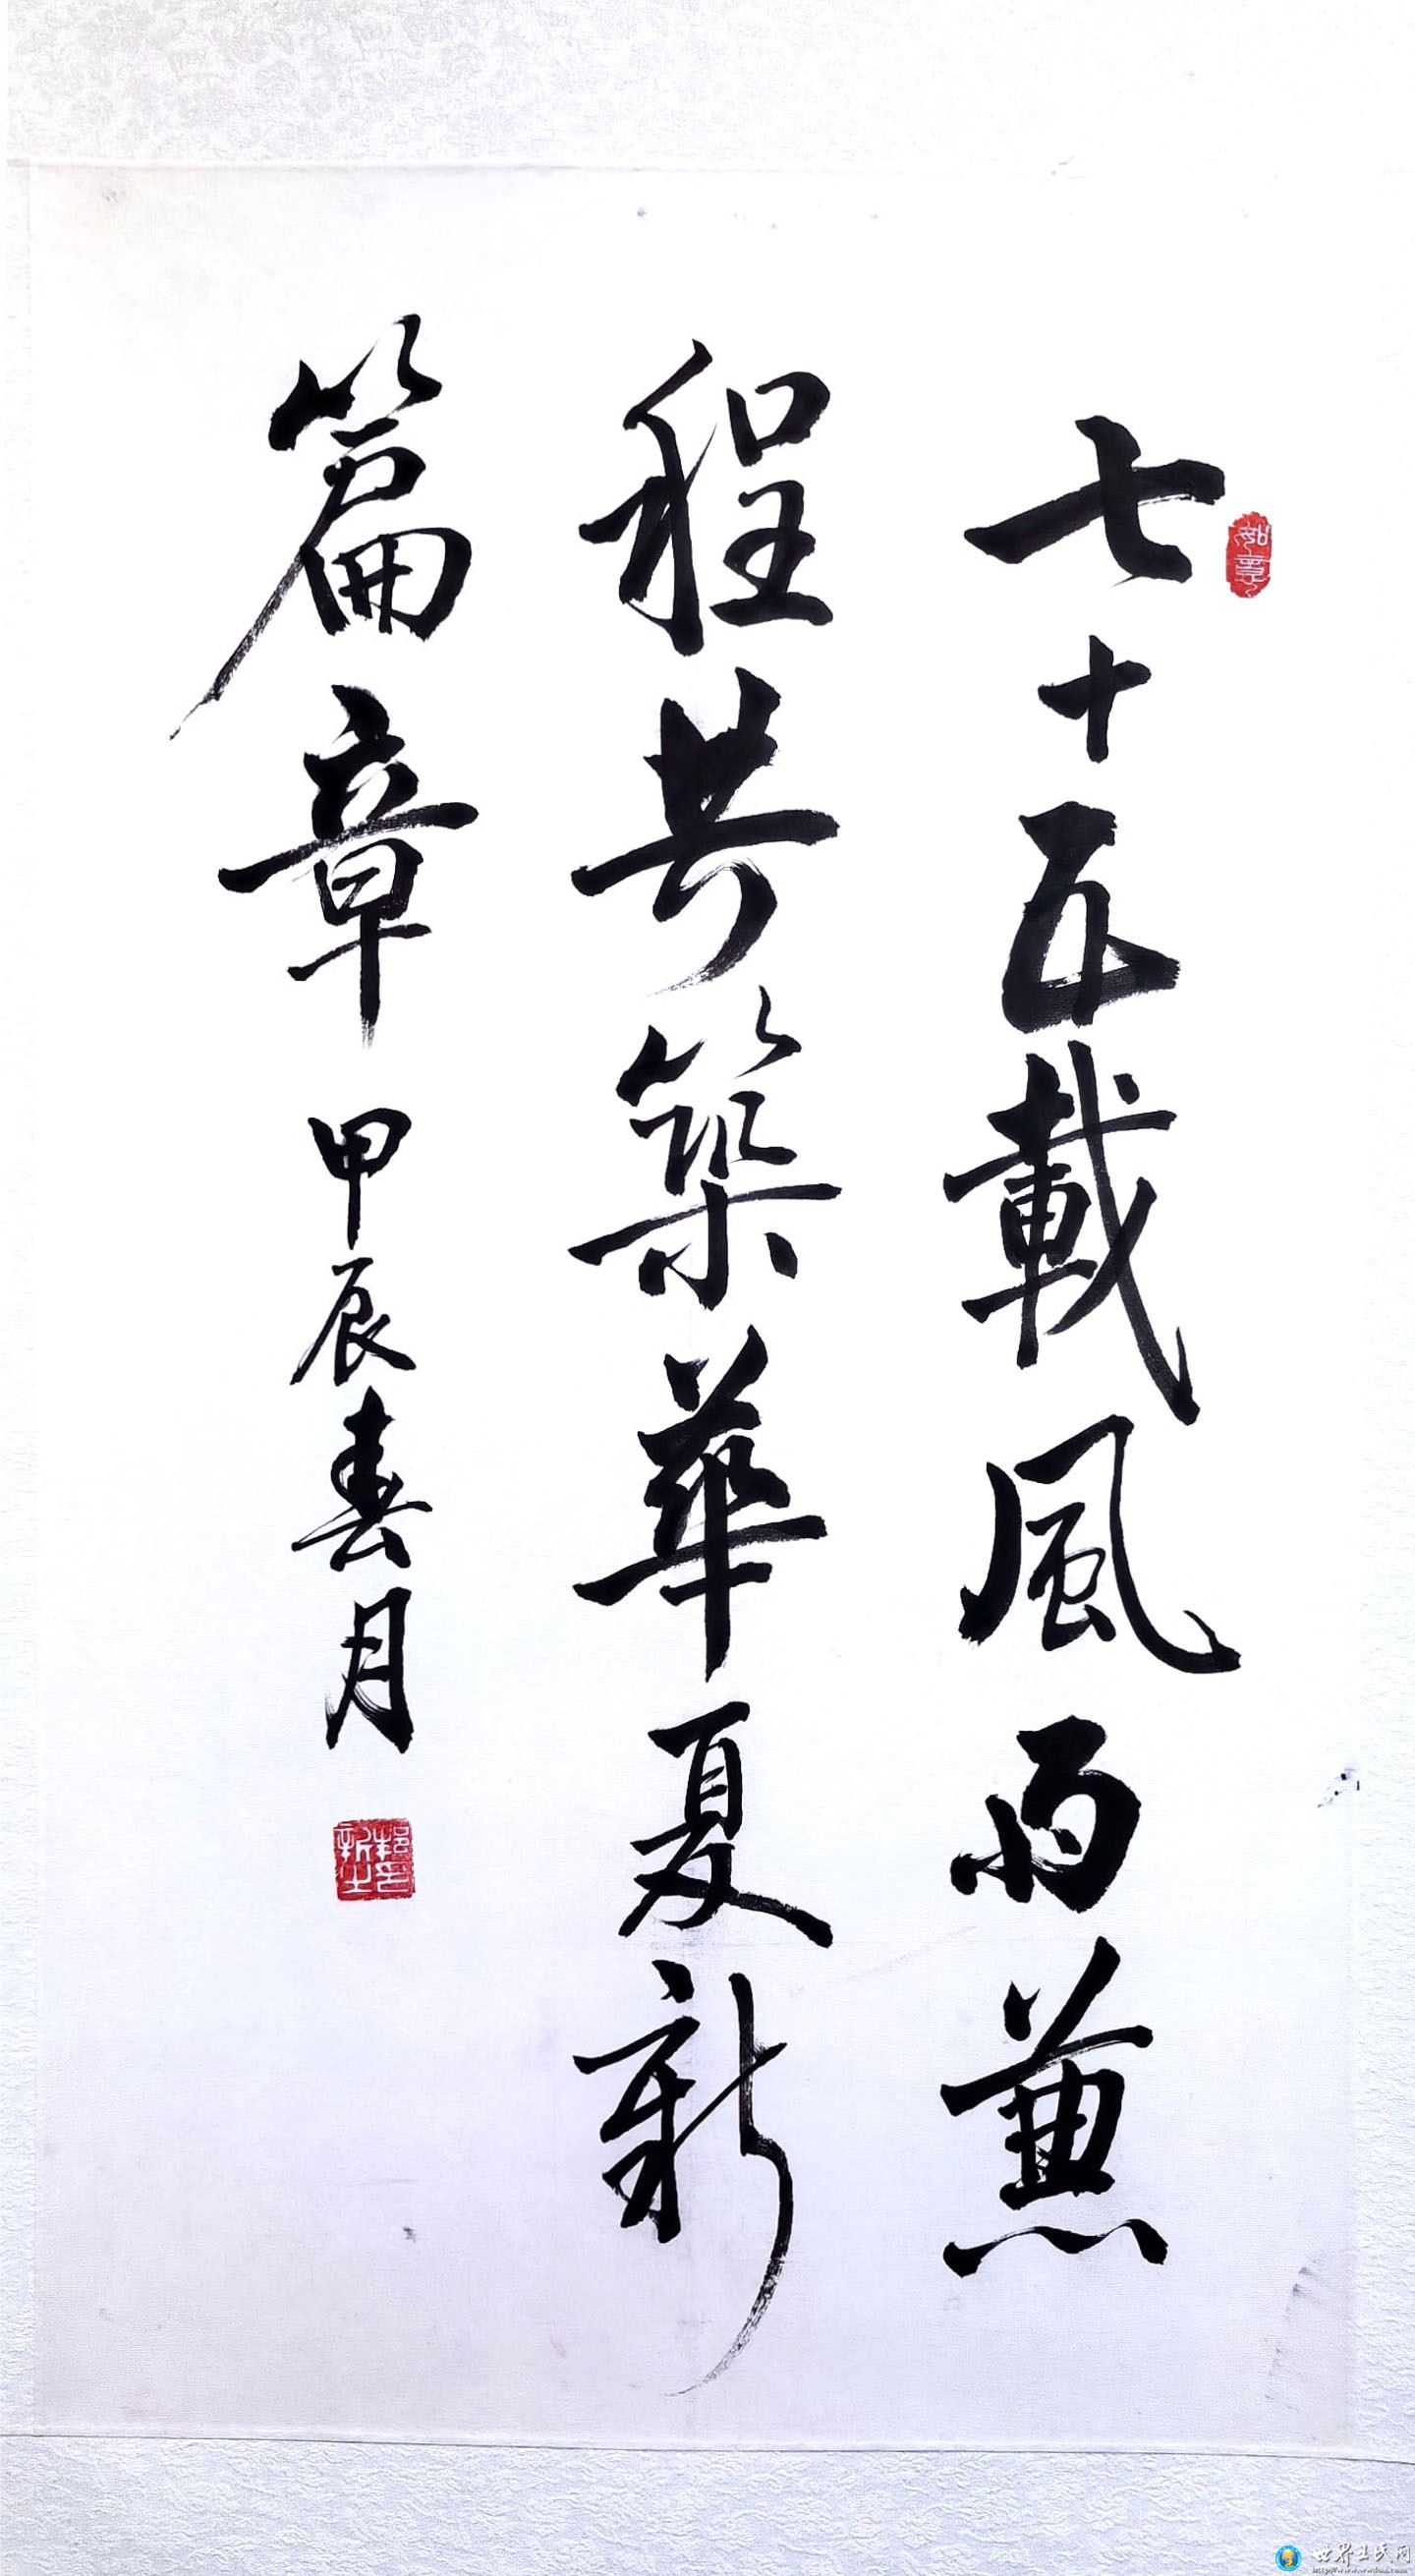 七十五載風雨兼
程共築華夏新
篇章 甲辰春月
如意
世界王氏网